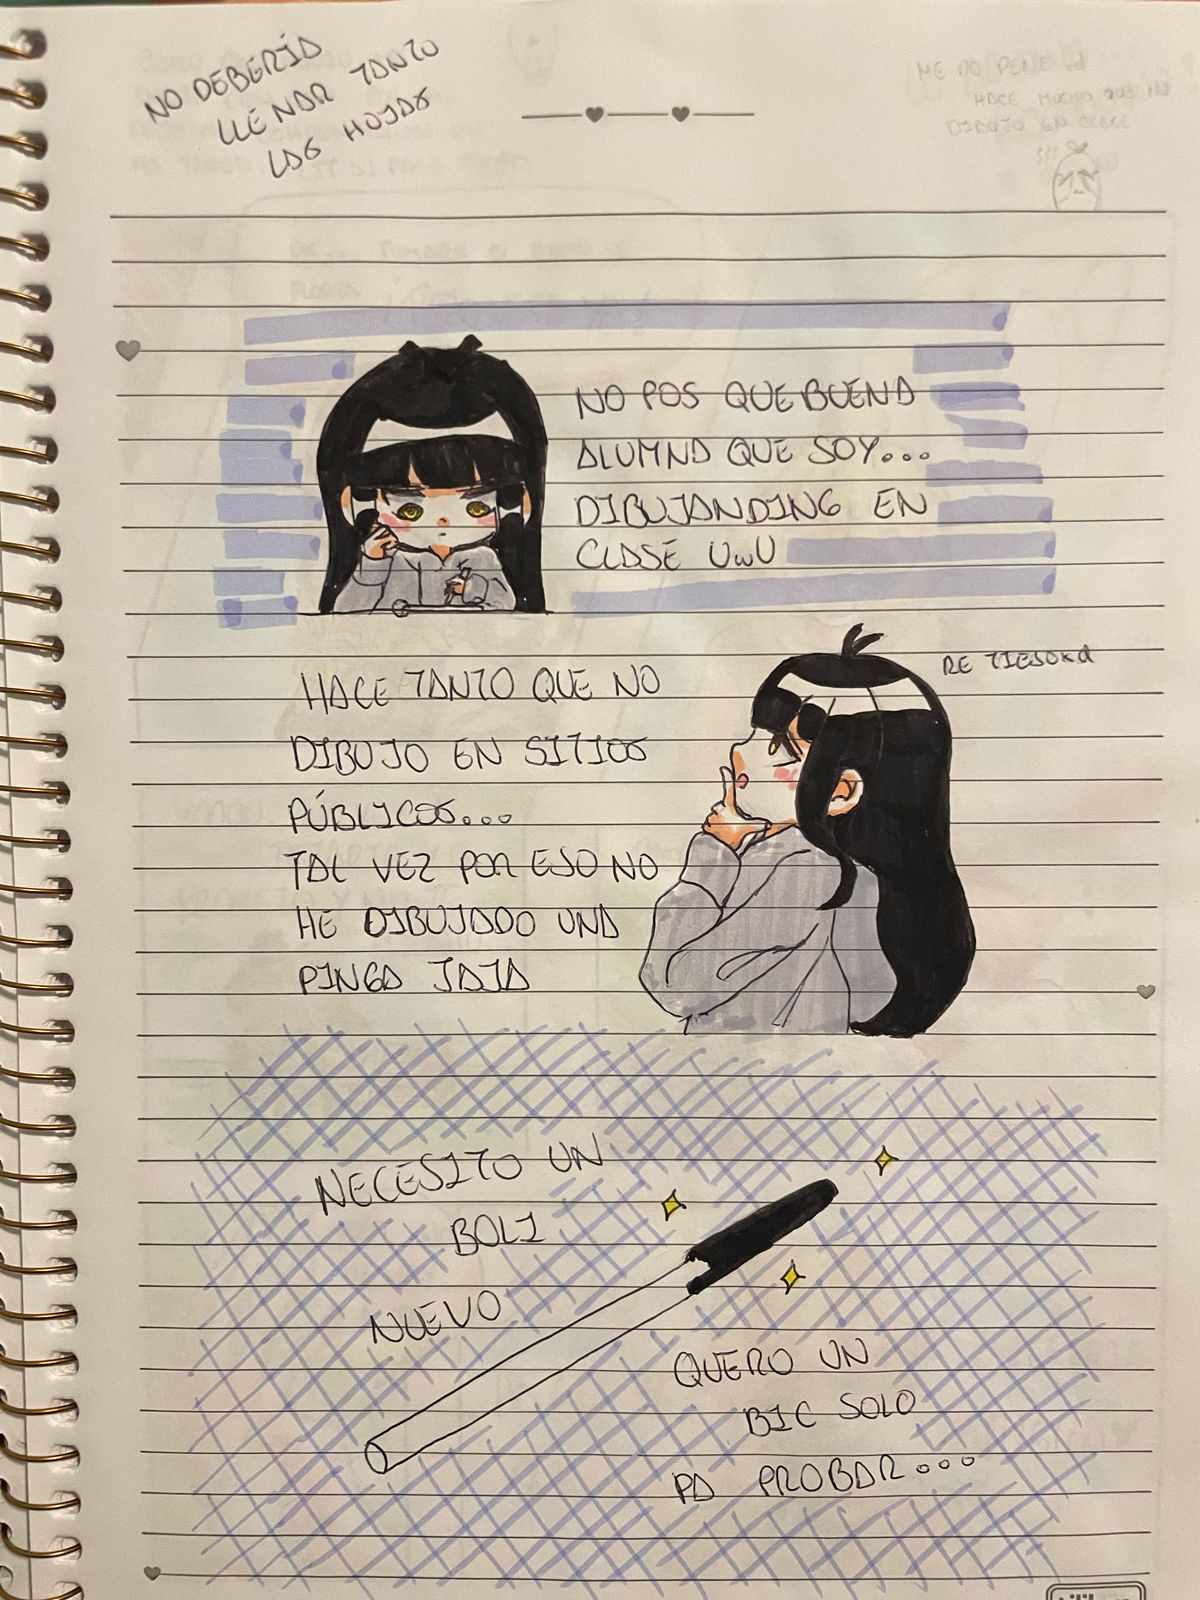 NO DEBERÍA
LLENAR TANTO
LAS HOJAS
ME DO PENE
HACE MUCHO QUE NO
DIBUJO EN CLASE
NO POS QUE BUENA
ALUMNA QUE SOY...
DIBUJANDING EN
CLASE UwU
RE TIESOXd
HACE TANTO QUE NO
DIBUJO EN SITIOS
PÚBLICOS...
TAL VEZ POR ESO NO
HE DIBUJADO UNA
PINGA JAJA
NECESITO UN
BOLI
NUEVO
QUERO UN
BIC SOLO
PA PROBAR...